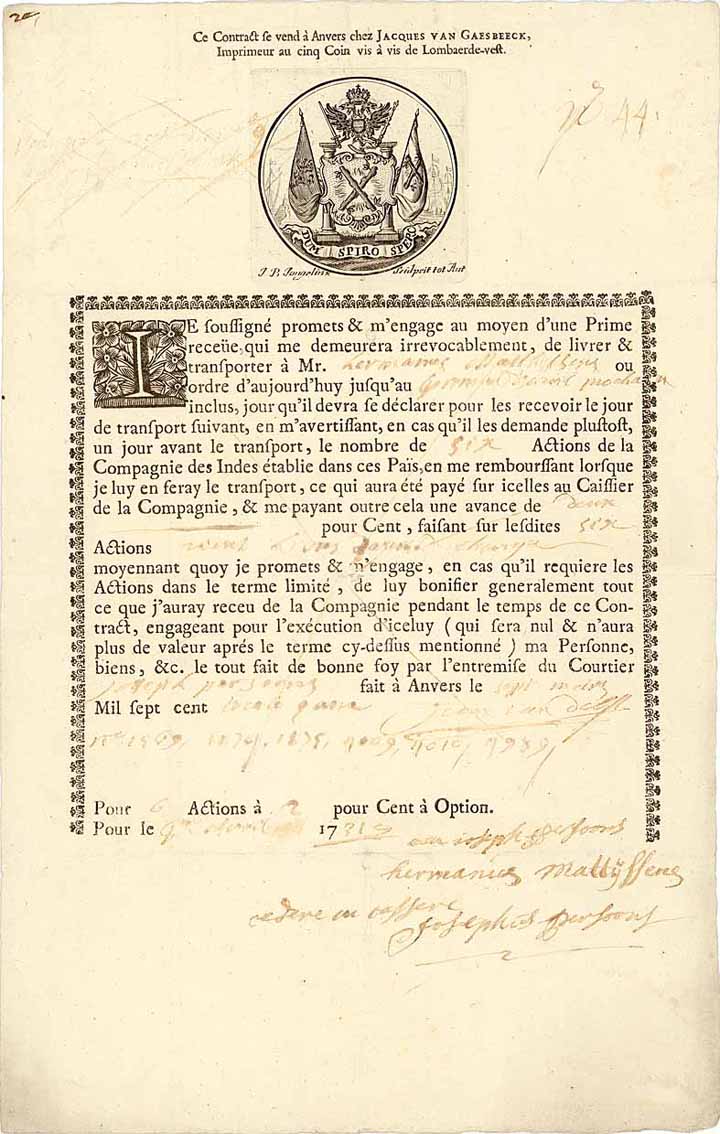 Ce Contract se vend à Anvers chez JACQUES VAN GAESBEECK,
Imprimeur au cinq Coin vis à vis de Lombaerde-vest.
44
DUM SPIRO SPERO
Sculpsit tot Ant
IE soussigné promets & m'engage au moyen d'une Prime
receüe, qui me demeurera irrevocablement, de livrer &
transporter à Mr. Hermanus Matthyssens ou
ordre d'aujourd'huy jusqu'au prochain
inclus, jour qu'il devra se déclarer pour les recevoir le jour
de transport suivant, en m'avertissant, en cas qu'il les demande plustost,
un jour avant le transport, le nombre de six Actions de la
Compagnie des Indes établie dans ces Païs, en me rembourssant lorsque
je luy en feray le transport, ce qui aura été payé sur icelles au Caissier
de la Compagnie, & me payant outre cela une avance de deux
pour Cent, faisant sur lesdites six
Actions change
moyennant quoy je promets & m'engage, en cas qu'il requiere les
Actions dans le terme limité, de luy bonifier generalement tout
ce que j'auray receu de la Compagnie pendant le temps de ce Con-
tract, engageant pour l'exécution d'iceluy (qui sera nul & n'aura
plus de valeur aprés le terme cy-dessus mentionné) ma Personne,
biens, &c. le tout fait de bonne foy par l'entremise du Courtier
joseph persoons fait à Anvers le sept
Mil sept cent van delft
Pour 6 Actions à 2 pour Cent à Option.
Pour le Avril 1731
joseph Persoons
hermanus Mattÿssens
Josephus Persoons